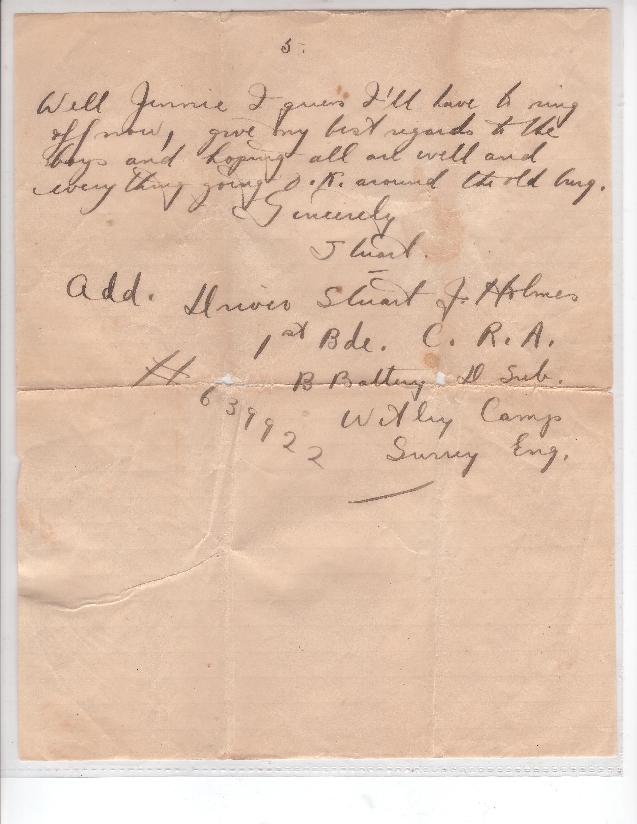 5.
Well Jennie I guess I'll have to ring
off now, give my best regards to the
boys and hoping all are well and
everything going O.K. around the old burg.
Sincerely
Stuart.
Add. Driver Stuart J. Holmes
1st Bde. C. R. A.
# B Battery D Sub.
639922 Witley Camp
Surrey Eng.